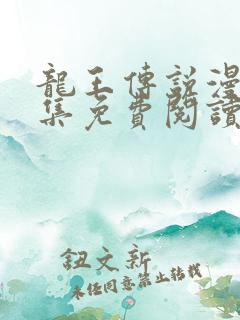 龍王傳說漫
集免費閱讀
鈕文新
未經同意禁止轉載